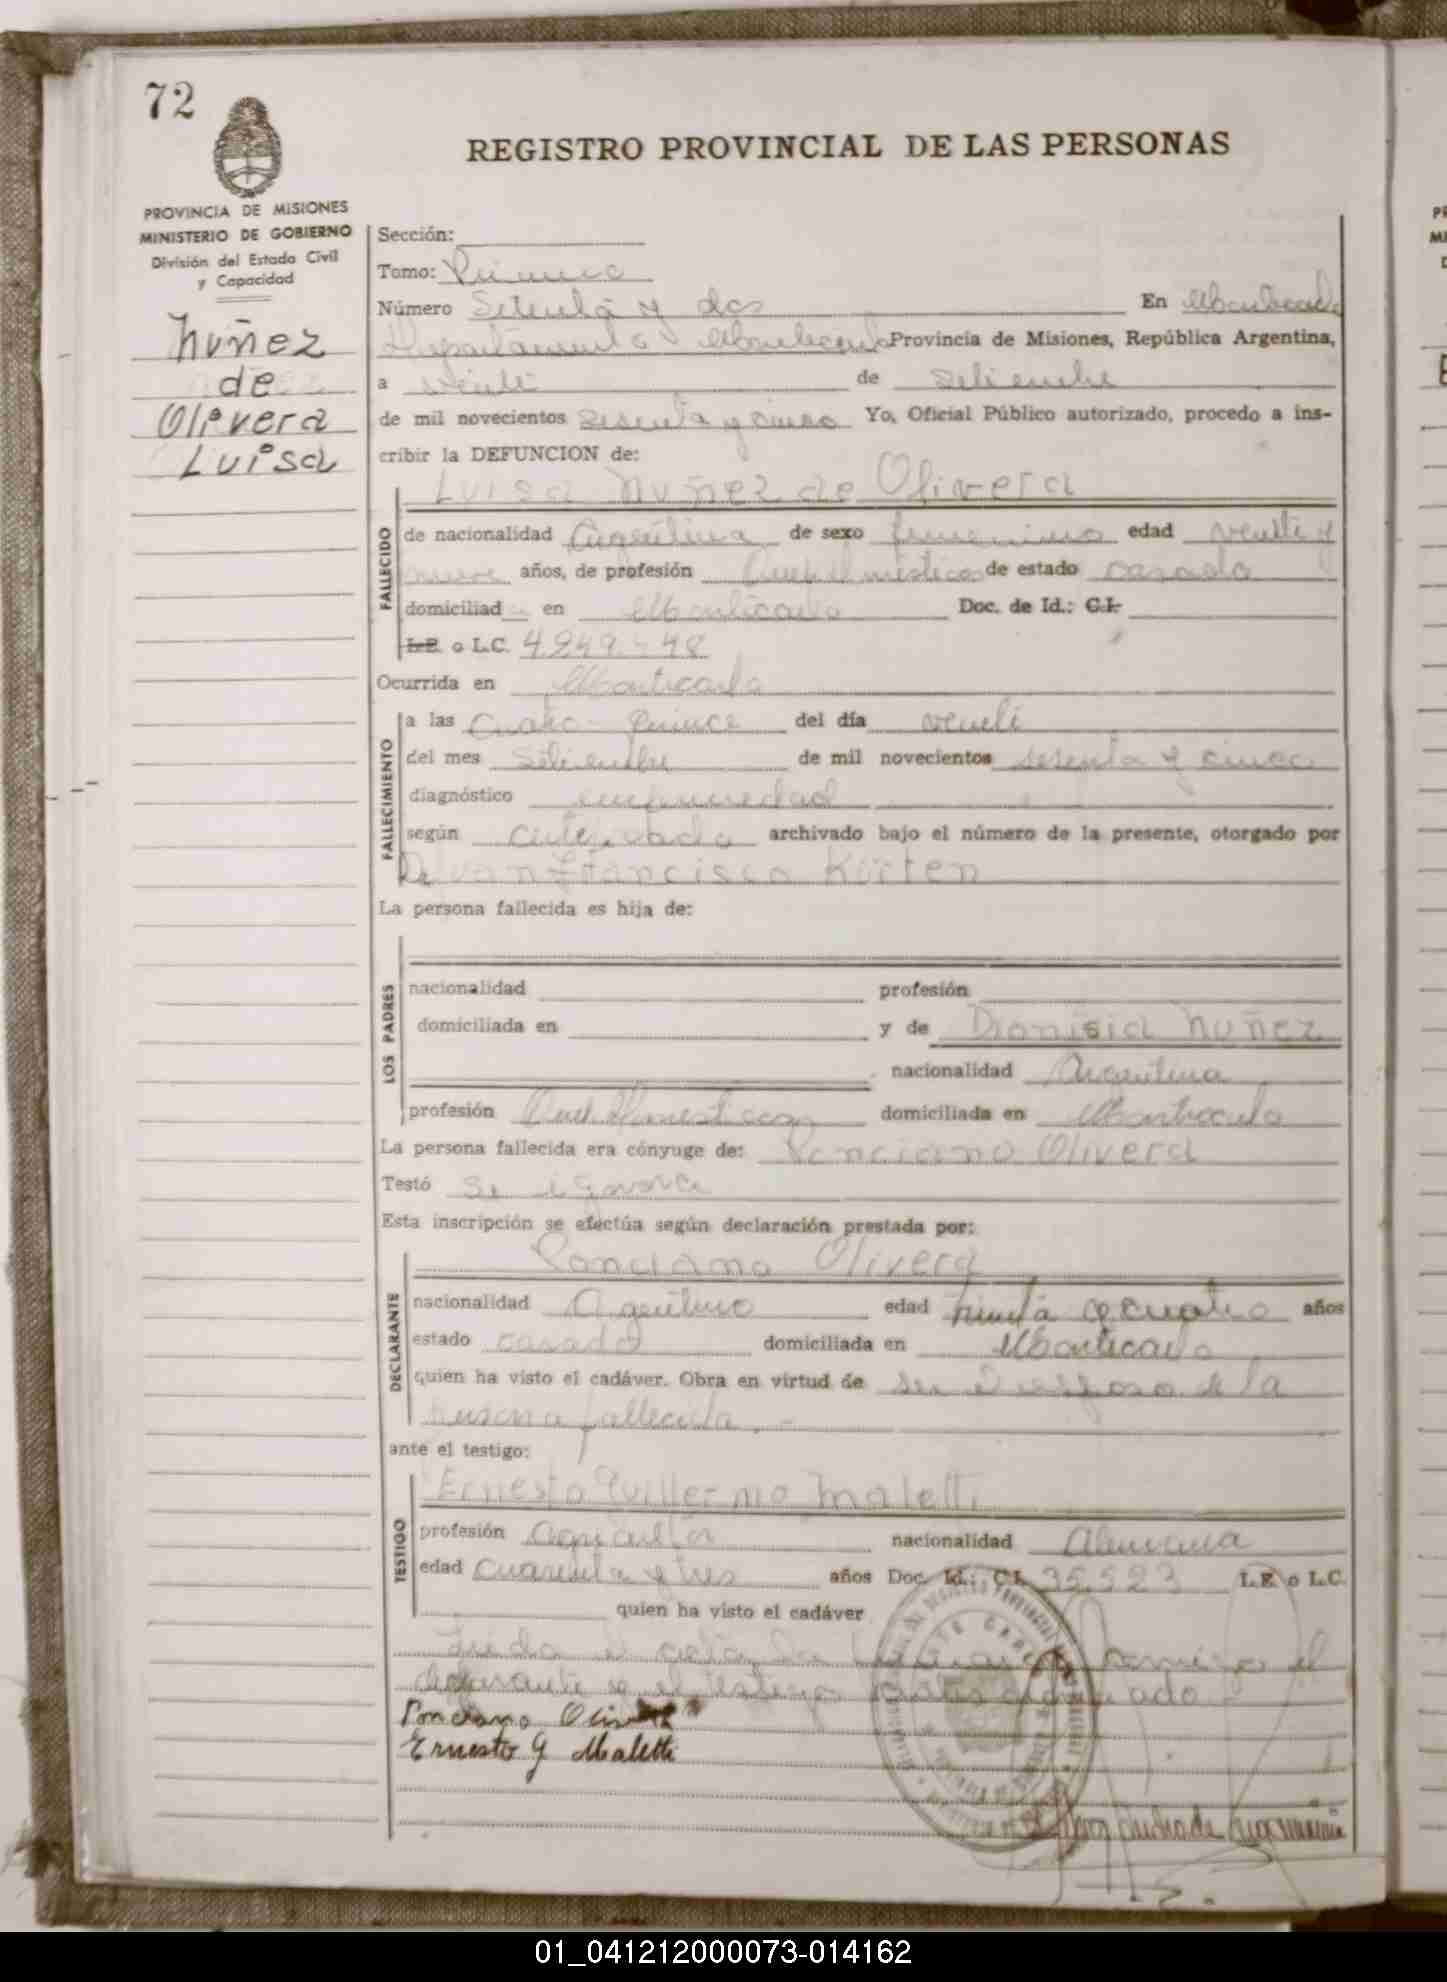 72
REGISTRO PROVINCIAL DE LAS PERSONAS
PROVINCIA DE MISIONES
MINISTERIO DE GOBIERNO
División del Estado Civil
y Capacidad
Nuñez
de
Olivera
Luisa
Sección:
Tomo: Primero
Número Setenta y dos En Montecarlo
Departamento Montecarlo Provincia de Misiones, República Argentina,
a veinte de setiembre
de mil novecientos sesenta y cinco Yo, Oficial Público autorizado, procedo a ins-
cribir la DEFUNCION de:
Luisa Nuñez de Olivera
FALLECIDO
de nacionalidad Argentina de sexo femenino edad veinte y
nueve años, de profesión Queh domésticos de estado casada
domiciliad a en Montecarlo Doc. de Id.: C.I.
L.E. o L.C. 4.249.-48
Ocurrida en Montecarlo
FALLECIMIENTO
a las Cuatro-Quince del día veinte
del mes Setiembre de mil novecientos sesenta y cinco
diagnóstico enfermedad
según certificado archivado bajo el número de la presente, otorgado por
Dr Juan Francisco Kürten
La persona fallecida es hija de:
LOS PADRES
nacionalidad profesión
domiciliada en y de Dionisia Nuñez
nacionalidad Argentina
profesión Queh Domesticos domiciliada en Montecarlo
La persona fallecida era cónyuge de: Ponciano Olivera
Testó Se ignora
Esta inscripción se efectúa según declaración prestada por:
Ponciano Olivera
DECLARANTE
nacionalidad Argentino edad treinta y cuatro años
estado casado domiciliada en Montecarlo
quien ha visto el cadáver. Obra en virtud de ser el esposo de la
persona fallecida.-
ante el testigo:
Ernesto Guillermo Maletti
TESTIGO
profesión Agricultor nacionalidad Alemana
edad Cuarenta y tres años Doc. Id.: C.I. 35.523 L.E. o L.C.
quien ha visto el cadáver
Leida el acta la firman conmigo el
declarante y el testigo
Ponciano Olivera
Ernesto G Maletti
01_041212000073-014162